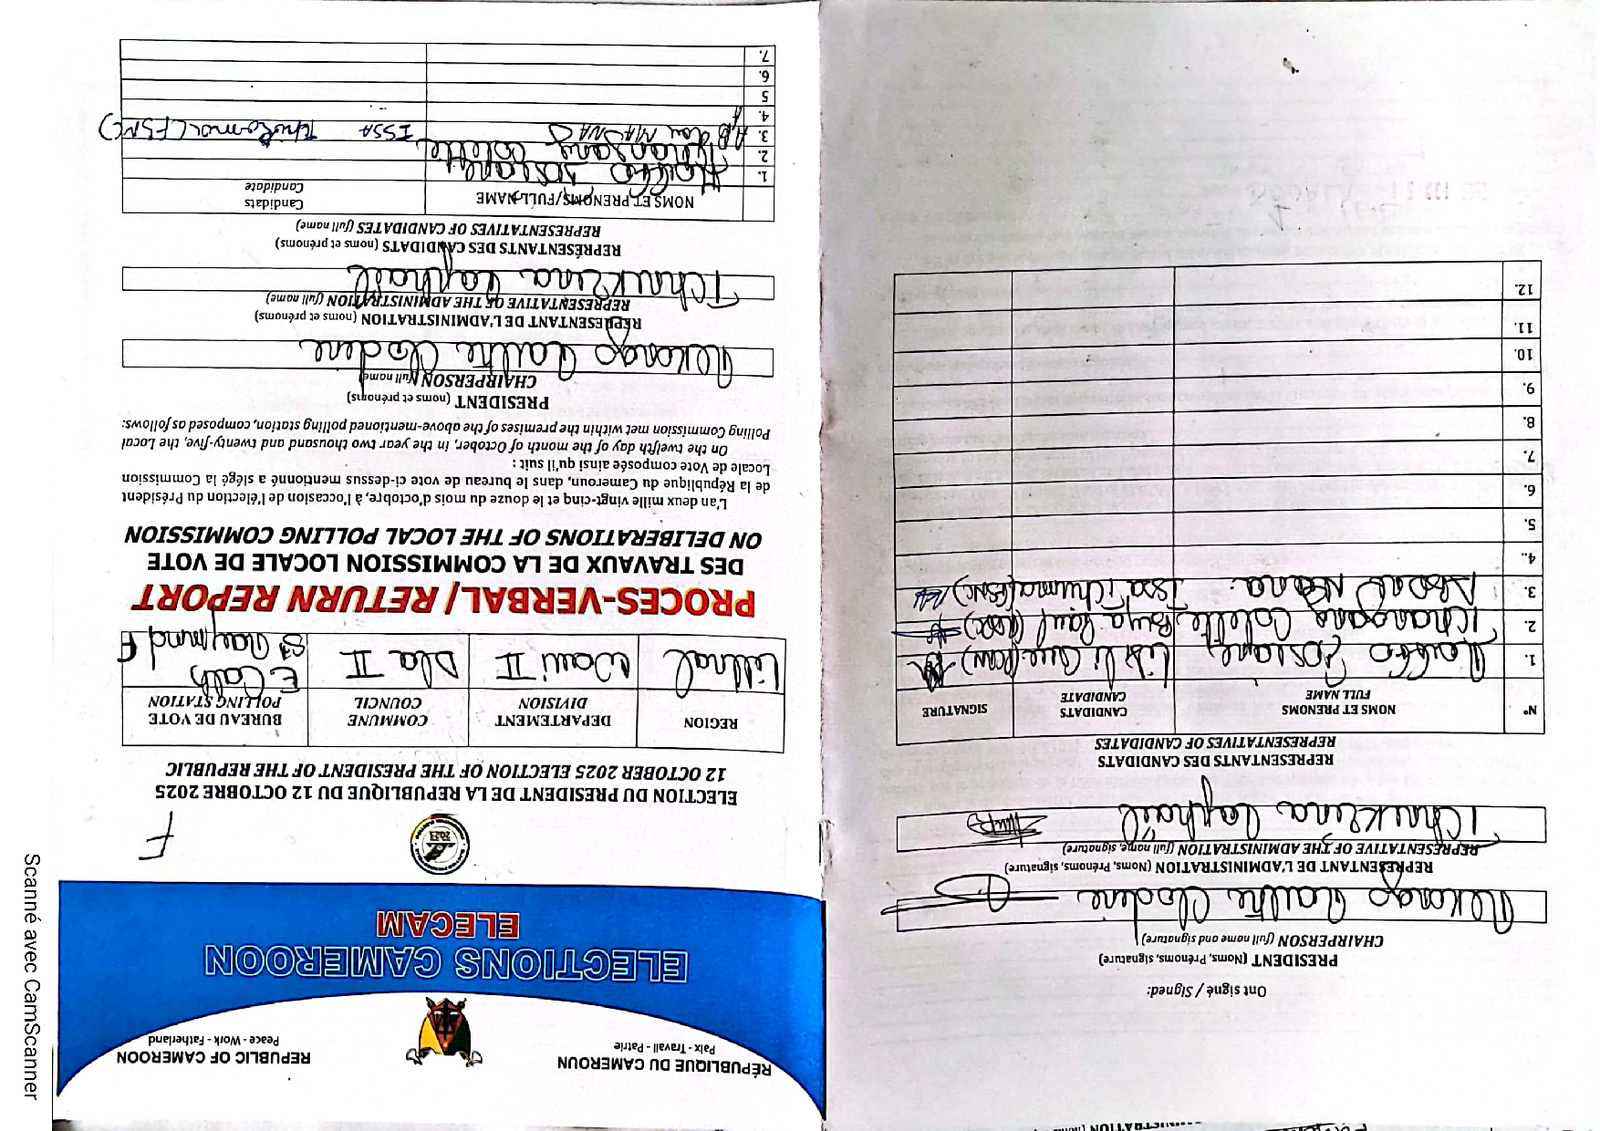 RÉPUBLIQUE DU CAMEROUN
Paix - Travail - Patrie
REPUBLIC OF CAMEROON
Peace - Work - Fatherland
ELECTIONS CAMEROON
ELECAM
F
ELECTION DU PRESIDENT DE LA REPUBLIQUE DU 12 OCTOBRE 2025
12 OCTOBER 2025 ELECTION OF THE PRESIDENT OF THE REPUBLIC
REGION
DEPARTEMENT
DIVISION
COMMUNE
COUNCIL
BUREAU DE VOTE
POLLING STATION
Littoral
Wouri II
Dla II
E. Cath
St Raymond F
PROCES-VERBAL/ RETURN REPORT
DES TRAVAUX DE LA COMMISSION LOCALE DE VOTE
ON DELIBERATIONS OF THE LOCAL POLLING COMMISSION
L'an deux mille vingt-cinq et le douze du mois d'octobre, à l'occasion de l'élection du Président
de la République du Cameroun, dans le bureau de vote ci-dessus mentionné a siégé la Commission
Locale de Vote composée ainsi qu'il suit :
On the twelfth day of the month of October, in the year two thousand and twenty-five, the Local
Polling Commission met within the premises of the above-mentioned polling station, composed as follows:
PRESIDENT (noms et prénoms)
CHAIRPERSON (full name)
REPRESENTANT DE L'ADMINISTRATION (noms et prénoms)
REPRESENTATIVE OF THE ADMINISTRATION (full name)
Raphaël
REPRÉSENTANTS DES CANDIDATS (noms et prénoms)
REPRESENTATIVES OF CANDIDATES (full name)
NOMS ET PRENOMS/FULL NAME
Candidats
Candidate
1.
2. Tchangang Colette
3. ISSA Tchiroma (FSNC)
4.
5
6.
7.
Ont signé / Signed:
PRESIDENT (Noms, Prénoms, signature)
CHAIRPERSON (full name and signature)
REPRESENTANT DE L'ADMINISTRATION (Noms, Prénoms, signature)
REPRESENTATIVE OF THE ADMINISTRATION (full name, signature)
Raphaël
REPRESENTANTS DES CANDIDATS
REPRESENTATIVES OF CANDIDATES
N°
NOMS ET PRENOMS
FULL NAME
CANDIDATS
CANDIDATE
SIGNATURE
1.
2. Tchangang Colette Biya Paul
3. Issa Tchiroma (FSNC)
4..
5.
6.
7.
8.
9.
10.
11.
12.
Scanné avec CamScanner